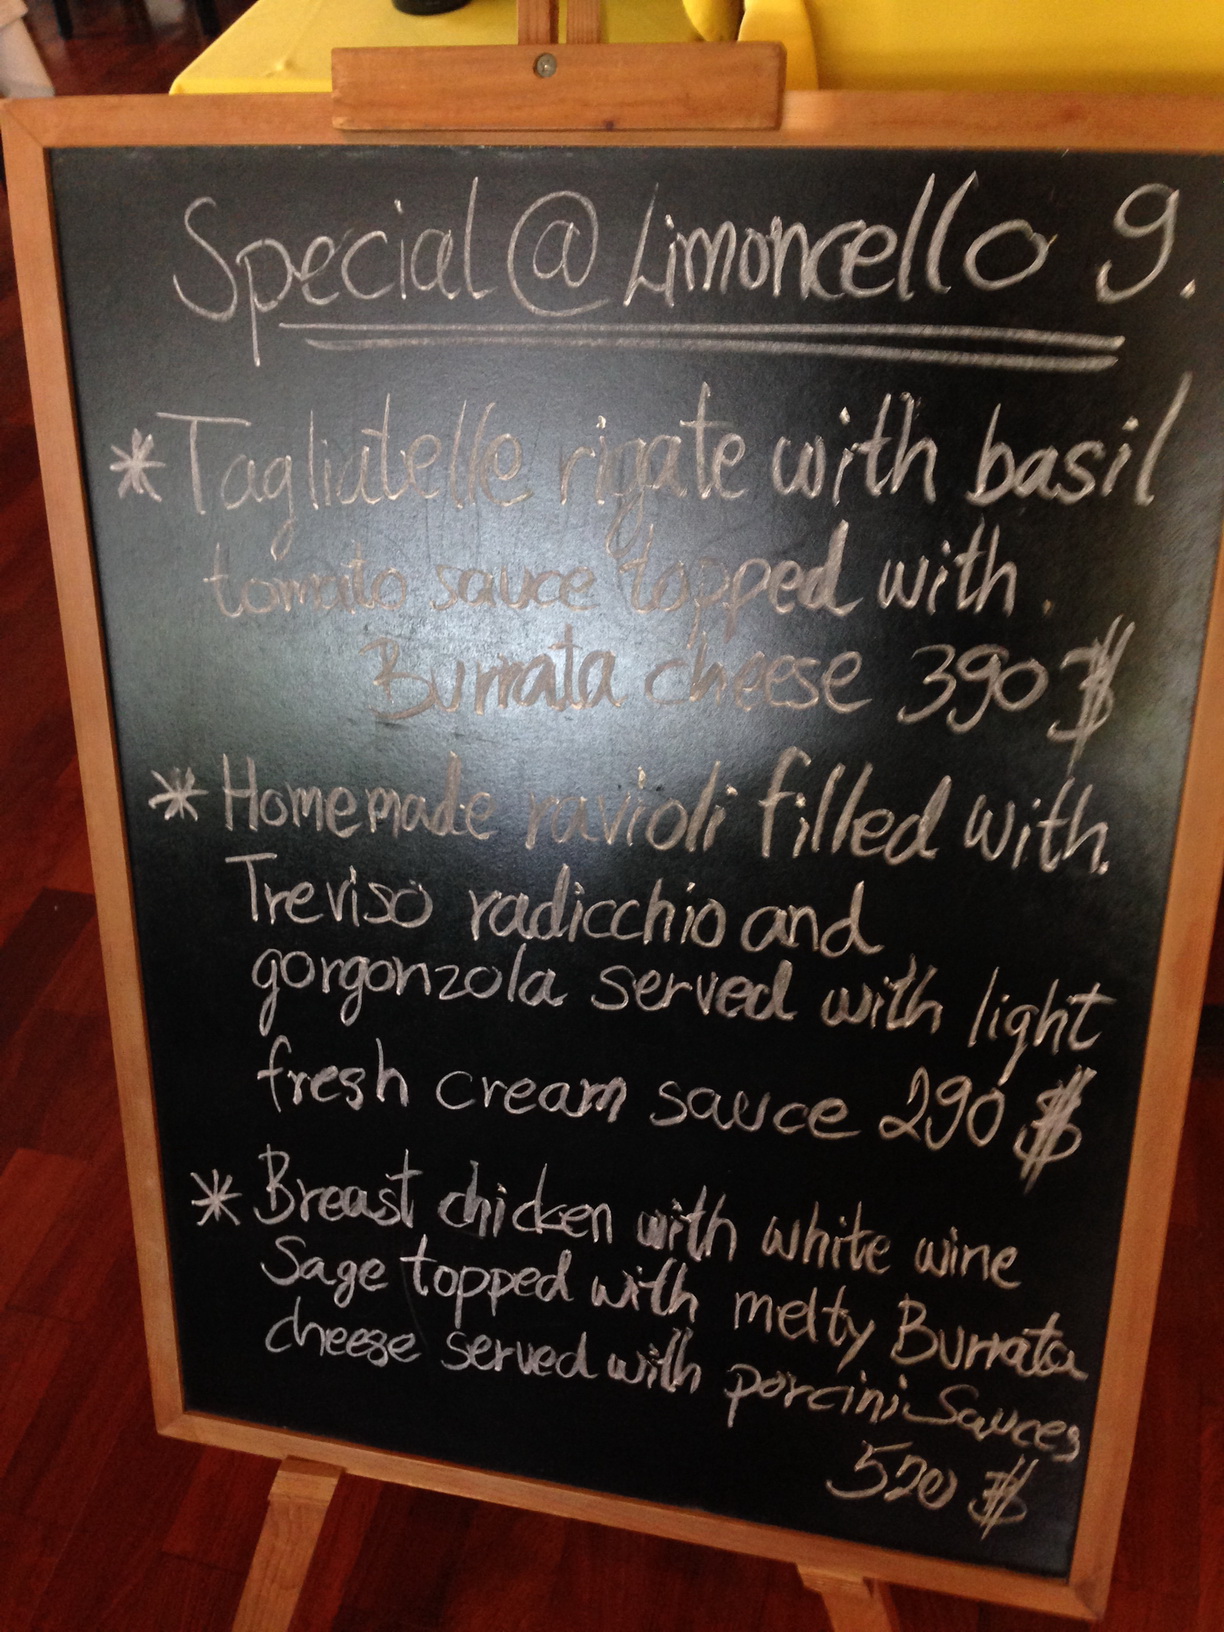 Special @ Limoncello 9.
* Tagliatelle rigate with basil
tomato sauce topped with.
Burrata cheese 390 ฿
* Homemade ravioli filled with.
Treviso radicchio and
gorgonzola served with light
fresh cream sauce 290 ฿
* Breast chicken with white wine
Sage topped with melty Burrata
cheese served with porcini Sauces
520 ฿